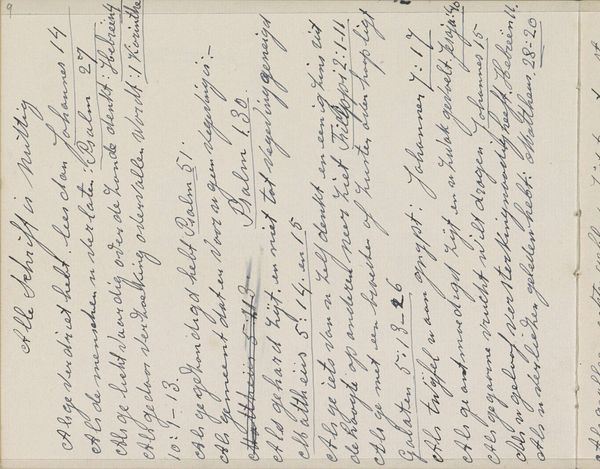 Alle Schrift is nuttig
Als ge verdriet hebt lees dan Johannes 14
Als de menschen u verlaten: Psalm 27
Als ge lichtvaardig over de zonde denkt: Hebreën 4
Als ge door verzoeking overvallen wordt: 1 Korinthe
10:9-13.
Als ge gezondigd hebt Psalm 51.
Als ge meent dat er voor u geen vergeving is:-
Psalm 130
Als ge gehard zijt, en niet tot vergeving geneigd
Mattheüs 5:14, en 15
Als ge iets van u zelf denkt en eenigzins uit
de hoogte op anderen neer ziet Filippi 2:1-11
Als ge met een bezeten of lusten
Galaten 5:13-26
Als twijfel u aan grijpt: Johannes 7:17
Als ge ontmoedigd zijt en u zwak gevoelt Jesaja: 40
Als ge gaarne vrucht wilt dragen Johannes 15
Als u geloof versterking noodig heeft. Hebreën 11.
Als u dierlijken geleden hebt: Mattheus 28-20